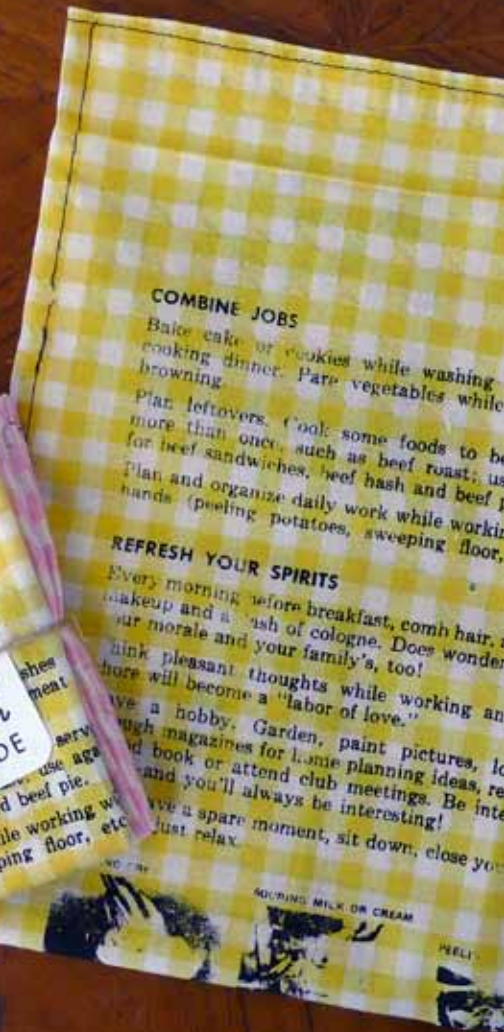 COMBINE JOBS
Bake cake or cookies while washing
cooking dinner. Pare vegetables while
browning.
Plan leftovers. Cook some foods to be
more than once, such as beef roast; us
for beef sandwiches, beef hash and beef
Plan and organize daily work while workin
hands (peeling potatoes, sweeping floor,
REFRESH YOUR SPIRITS
Every morning before breakfast, comb hair, a
makeup and a ash of cologne. Does wonder
our morale and your family's, too!
hink pleasant thoughts while working an
hore will become a "labor of love."
ve a hobby. Garden, paint pictures, lo
ugh magazines for home planning ideas, re
d book or attend club meetings. Be inte
and you'll always be interesting!
ve a spare moment, sit down, close yo
just relax.
POURING MILK OR CREAM
PEELI
shes
meat
DE
serv
use aga
d beef pie.
ile working w
ping floor, etc